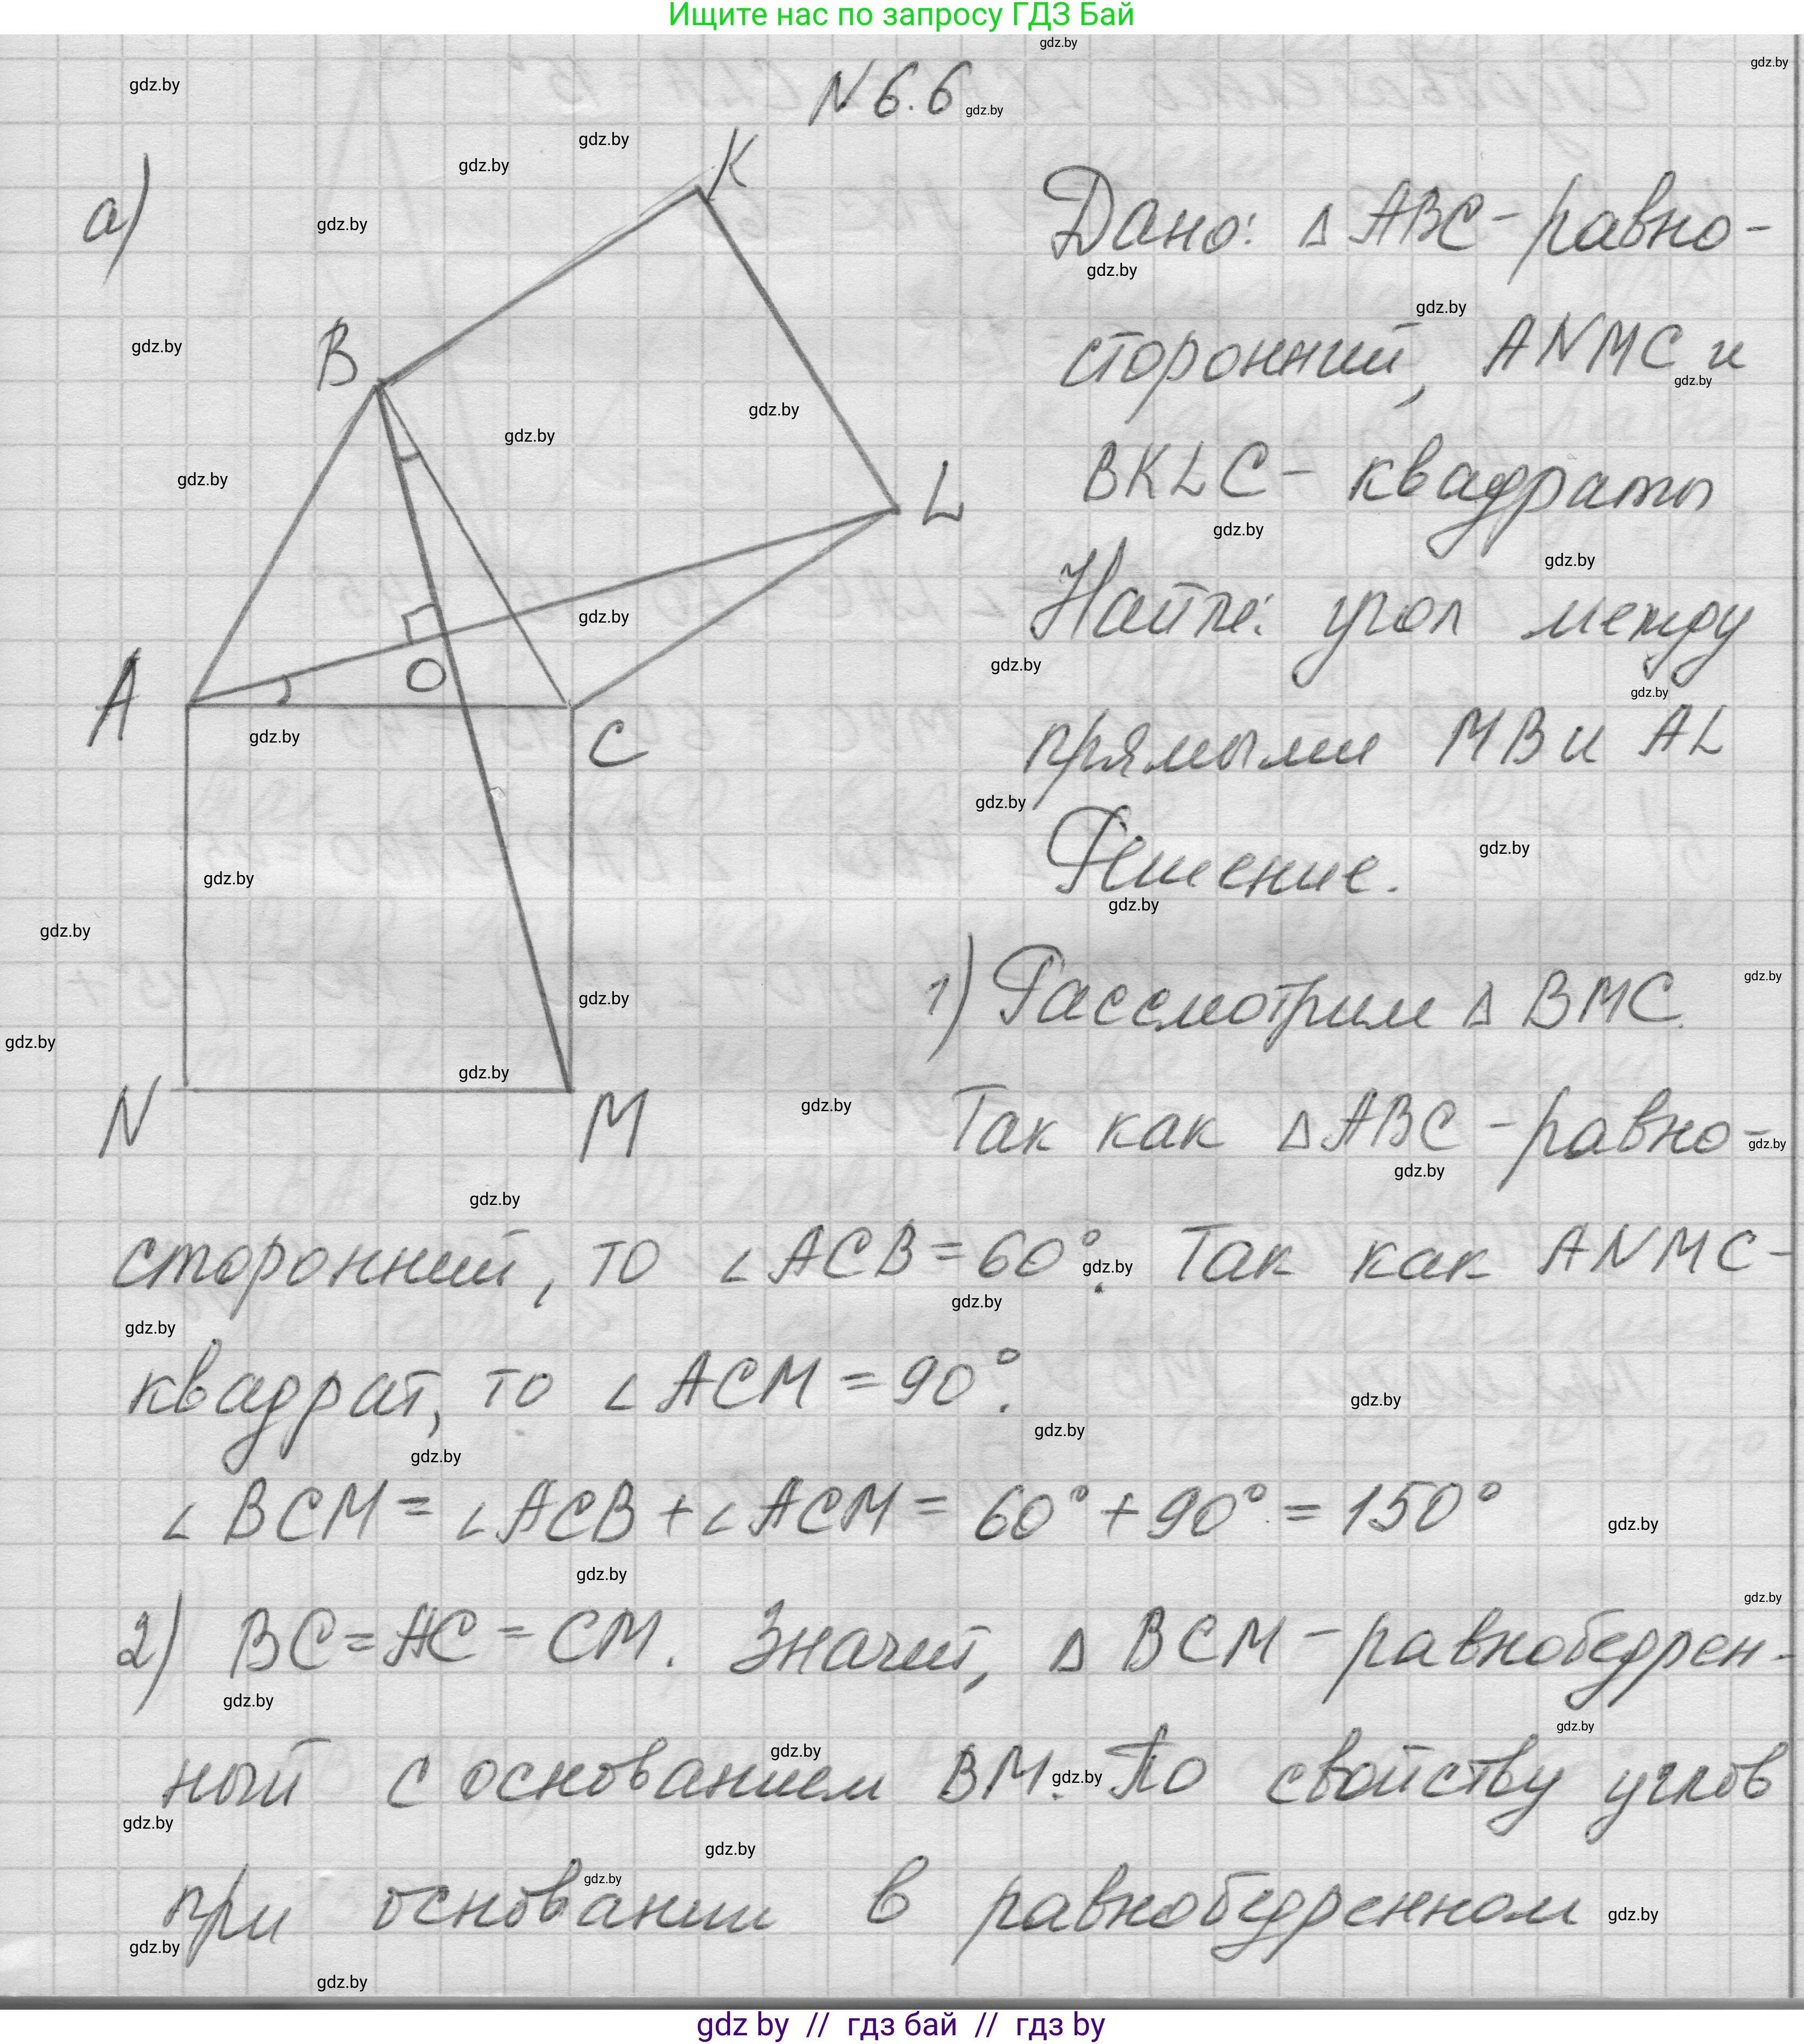 Ищите нас по запросу ГДЗ Бай
N 6.6
а)
K
B
L
A
O
C
N
M
Дано: △ ABC - равно-
сторонний, ANMC и
BKLC - квадраты
Найти: угол между
прямыми MB и AL
Решение.
1) Рассмотрим △ BMC.
Так как △ABC - равно-
сторонний, то ∠ACB = 60°. Так как ANMC -
квадрат, то ∠ACM = 90°.
∠BCM = ∠ACB + ∠ACM = 60° + 90° = 150°
2) BC = AC = CM. Значит, △ BCM - равнобедрен-
ный с основанием BM. По свойству углов
при основании в равнобедренном
gdz by // гдз бай // гдз by